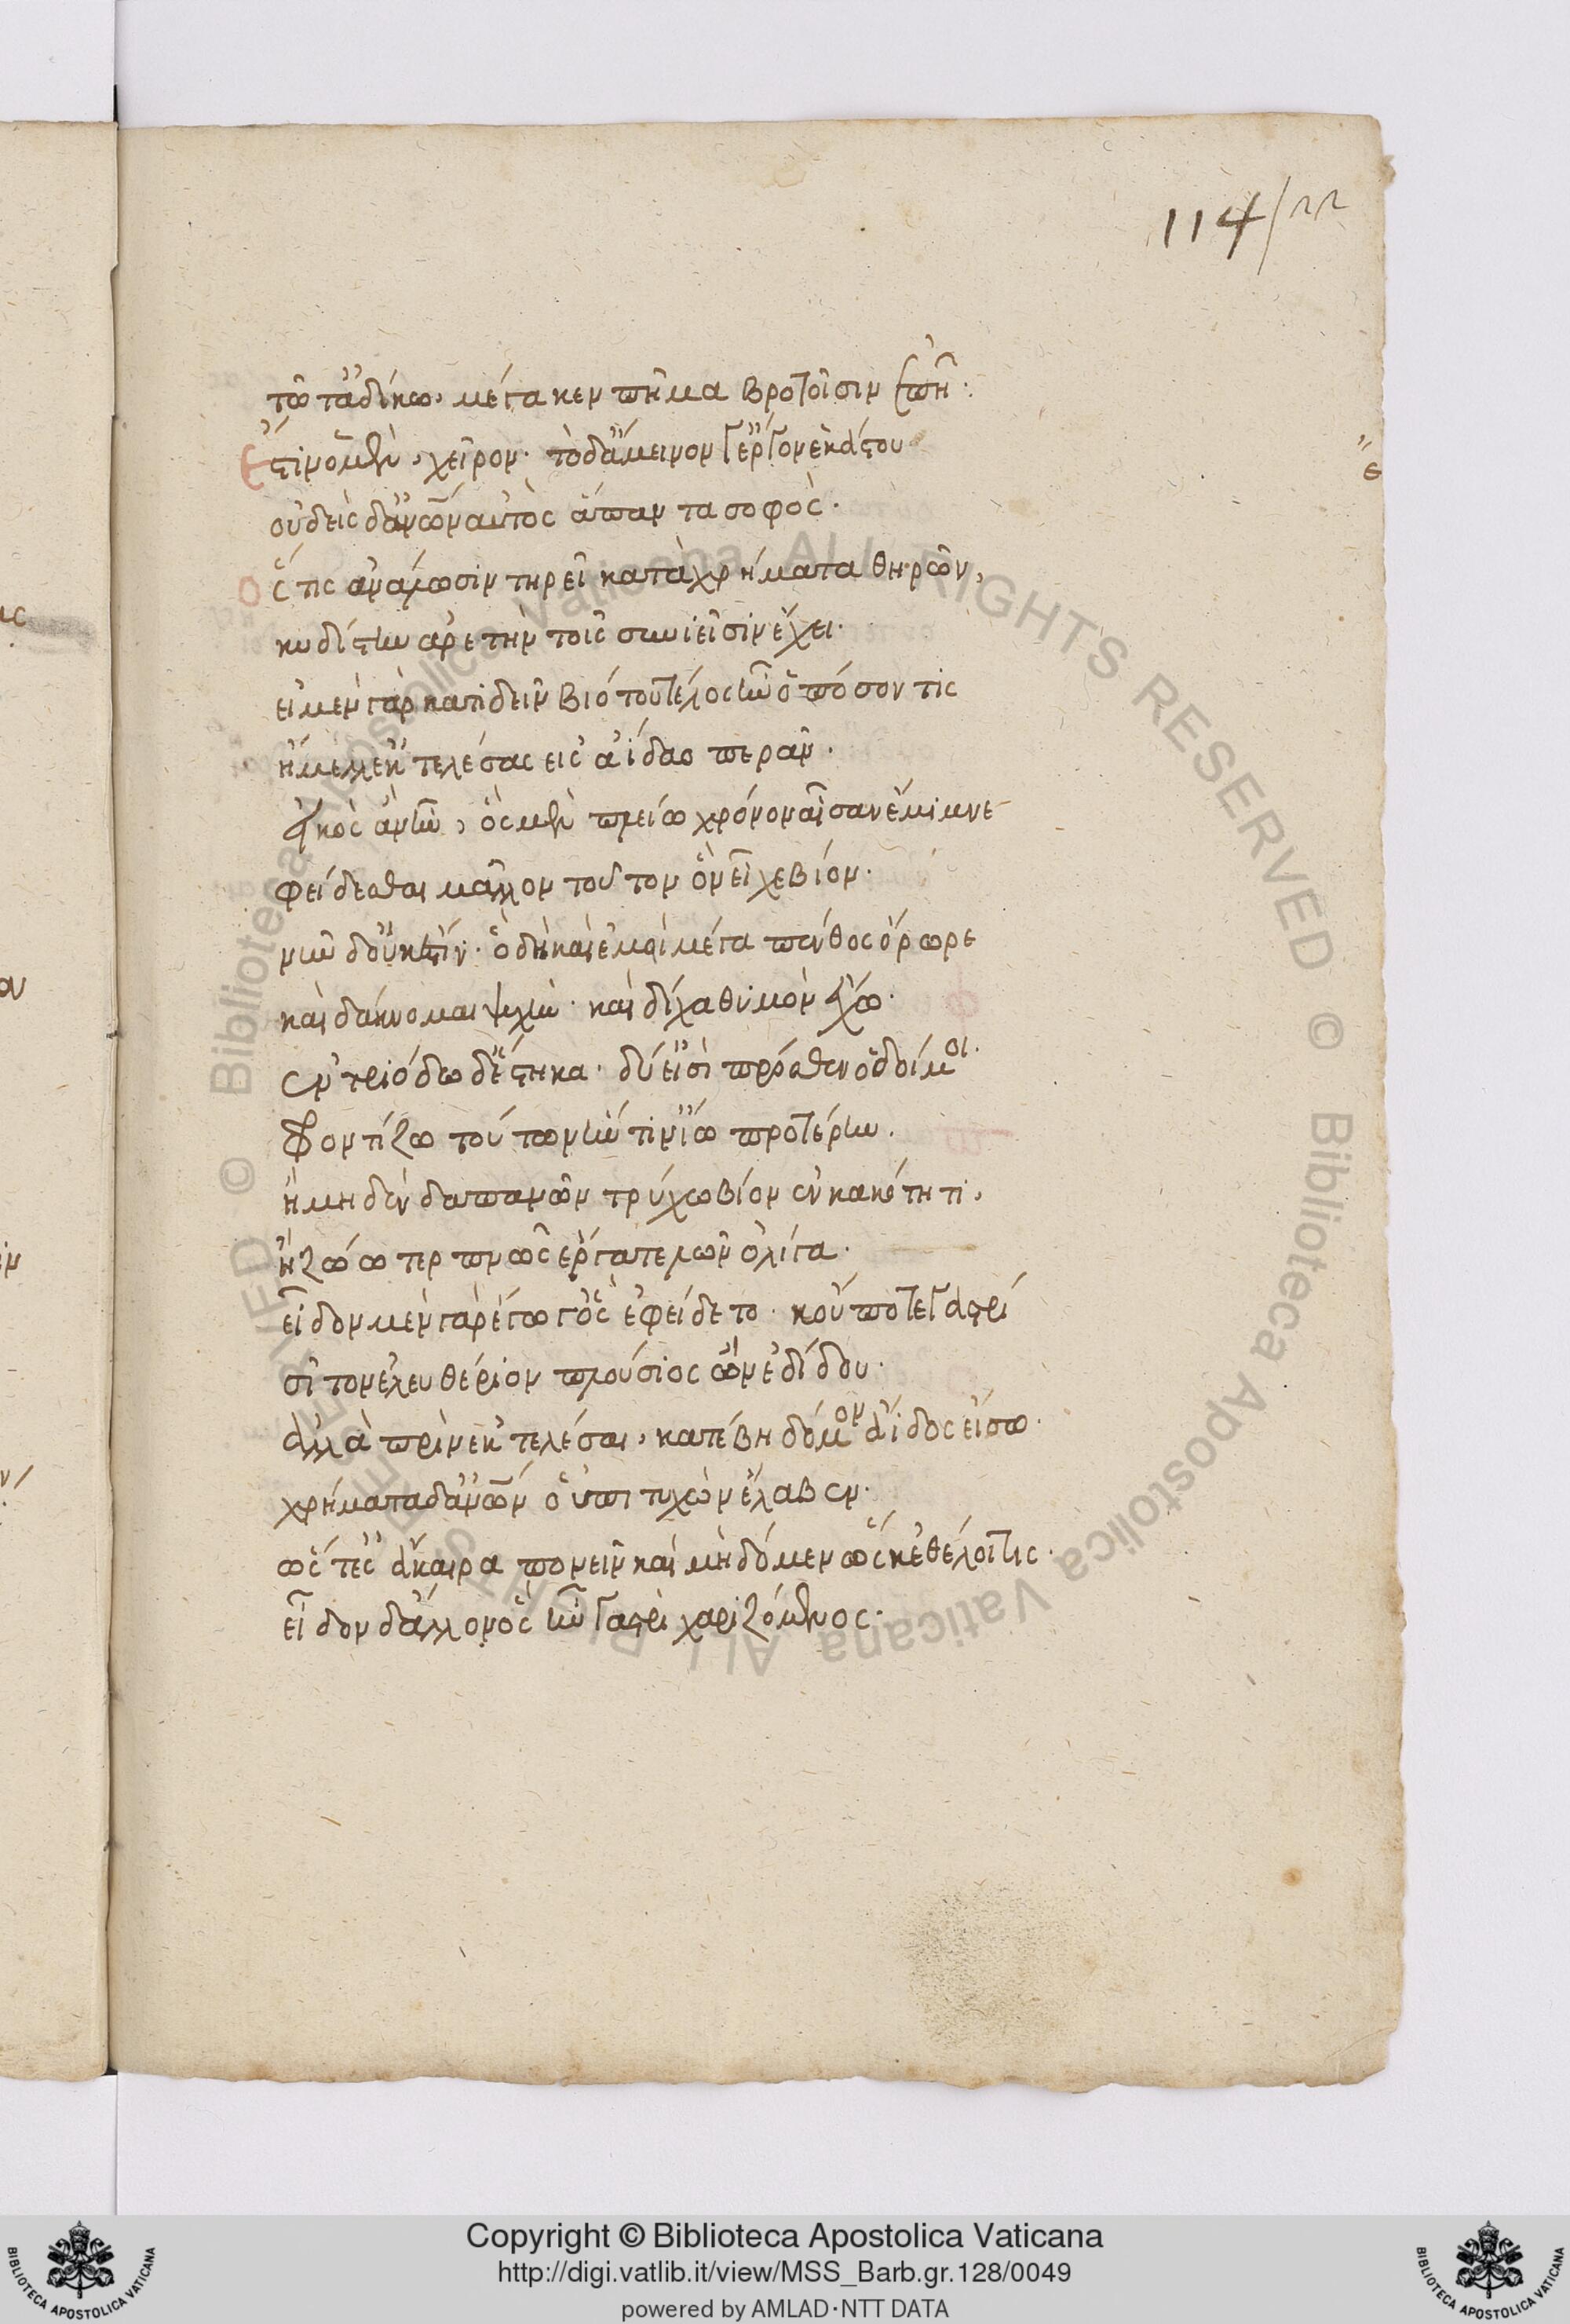 114/22
τῶ τἀδίκω, μέγα κεν πῆμα βροτοῖσιν ἐπῆ:
Ἔστιν ὁ μὲν, χεῖρον· τὸ δ' ἄμεινον γ' ἔργον ἑκάστου
οὐδεὶς δ' ἀνθρώπων αὐτὸς ἅπαντα σοφὸς·
Ὅς τις ἀνάλωσιν τηρεῖ κατὰ χρήματα θηρῶν,
κυδίστην ἀρετὴν τοῖς συνιεῖσιν ἔχει.
εἰ μὲν γὰρ κατιδεῖν βιότου τέλος ἦν ὁπόσον τις
ἤμελλ' ἐκτελέσας εἰς ἀΐδαο περᾶν.
εἰκὸς ἂν ἦν, ὃς μὲν πλείω χρόνον αἶσαν ἔμιμνε
φείδεσθαι μᾶλλον τοῦτον ὃν εἶχε βίον.
νῦν δ' οὐκ ἔστιν. ὃ δὴ καὶ ἐμοὶ μέγα πένθος ὄρωρε
καὶ δάκνομαι ψυχὴν· καὶ δίχα θυμὸν ἔχω.
ἐν τριόδω δ' ἕστηκα. δύ' εἰσὶ πρόσθεν ὁδοί μοι.
φροντίζω τούτων ἥν τιν' ἴω προτέρην.
ἢ μηδὲν δαπανῶν τρύχω βίον ἐν κακότητι,
ἢ ζώω τερπνῶς ἔργα τελῶν ὀλίγα.
εἶδον μὲν γὰρ ἔγωγ' ὃς ἐφείδετο. κοὔποτε γαστρὶ
σῖτον ἐλευθέριον πλούσιος ὢν ἐδίδου.
ἀλλὰ πρὶν ἐκτελέσαι, κατέβη δόμον ἄϊδος εἴσω.
χρήματα δ' ἀνθρώπων οὑπιτυχὼν ἔλαβεν.
ὥς τ' ἐς ἄκαιρα πονεῖν καὶ μὴ δόμεν ὥς κ' ἐθέλοι τις.
εἶδον δ' ἄλλον ὃς ἦν γαστρὶ χαριζόμενος.
Copyright © Biblioteca Apostolica Vaticana
http://digi.vatlib.it/view/MSS_Barb.gr.128/0049
powered by AMLAD·NTT DATA